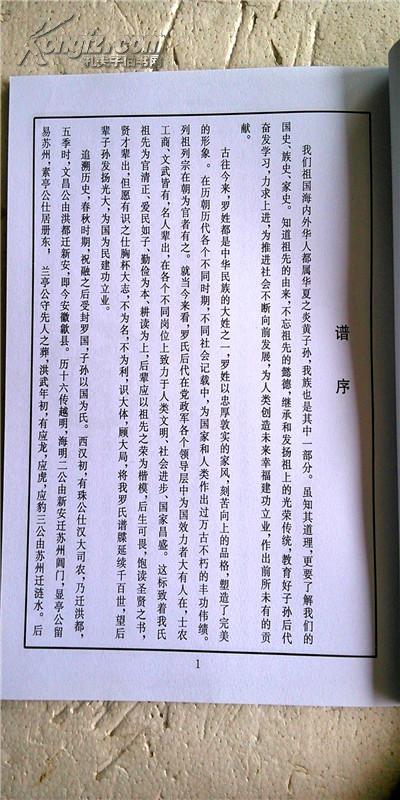 Kongfz.com
孔夫子旧书网
谱序
我们祖国海内外华人都属华夏之炎黄子孙，我族也是其中一部分。虽知其道理，更要了解我们的
国史、族史、家史。知道祖先的由来，不忘祖先的懿德，继承和发扬祖上的光荣传统，教育好子孙后代
奋发学习，力求上进，为推进社会不断向前发展，为人类创造未来幸福建功立业，作出前所未有的贡
献。
古往今来，罗姓都是中华民族的大姓之一，罗姓以忠厚敦实的家风，刻苦向上的品格，塑造了完美
的形象。在历朝历代各个不同时期，不同社会记载中，为国家和人类作出过万古不朽的丰功伟绩。
列祖列宗在朝为官者有之。就当今来看，罗氏后代在党政军各个领导层中为国效力者大有人在，士农
工商、文武皆有，名人辈出，在各个不同岗位上致力于人类文明、社会进步、国家昌盛。这标致着我氏
祖先为官清正、爱民如子、勤俭为本、耕读为上，后辈应以祖先之荣为楷模，后生可畏，饱读圣贤之书，
贤才辈出，但愿有识之仕胸杯大志，不为名，不为利，识大体，顾大局，将我罗氏谱牒延续千百世，望后
辈子孙发扬光大，为国为民建功立业。
追溯历史，春秋时期，祝融之后受封罗国，子孙以国为氏。西汉初，有珠公仕汉大司农，乃迁洪都，
五季时，文昌公由洪都迁新安，即今安徽歙县。历十六传越明，海明二公由新安迁苏州阊门，显亭公留
易苏州，素亭公仕居册东，兰亭公守先人之葬，洪武年初，有应龙，应虎，应豹三公由苏州迁涟水。后
1